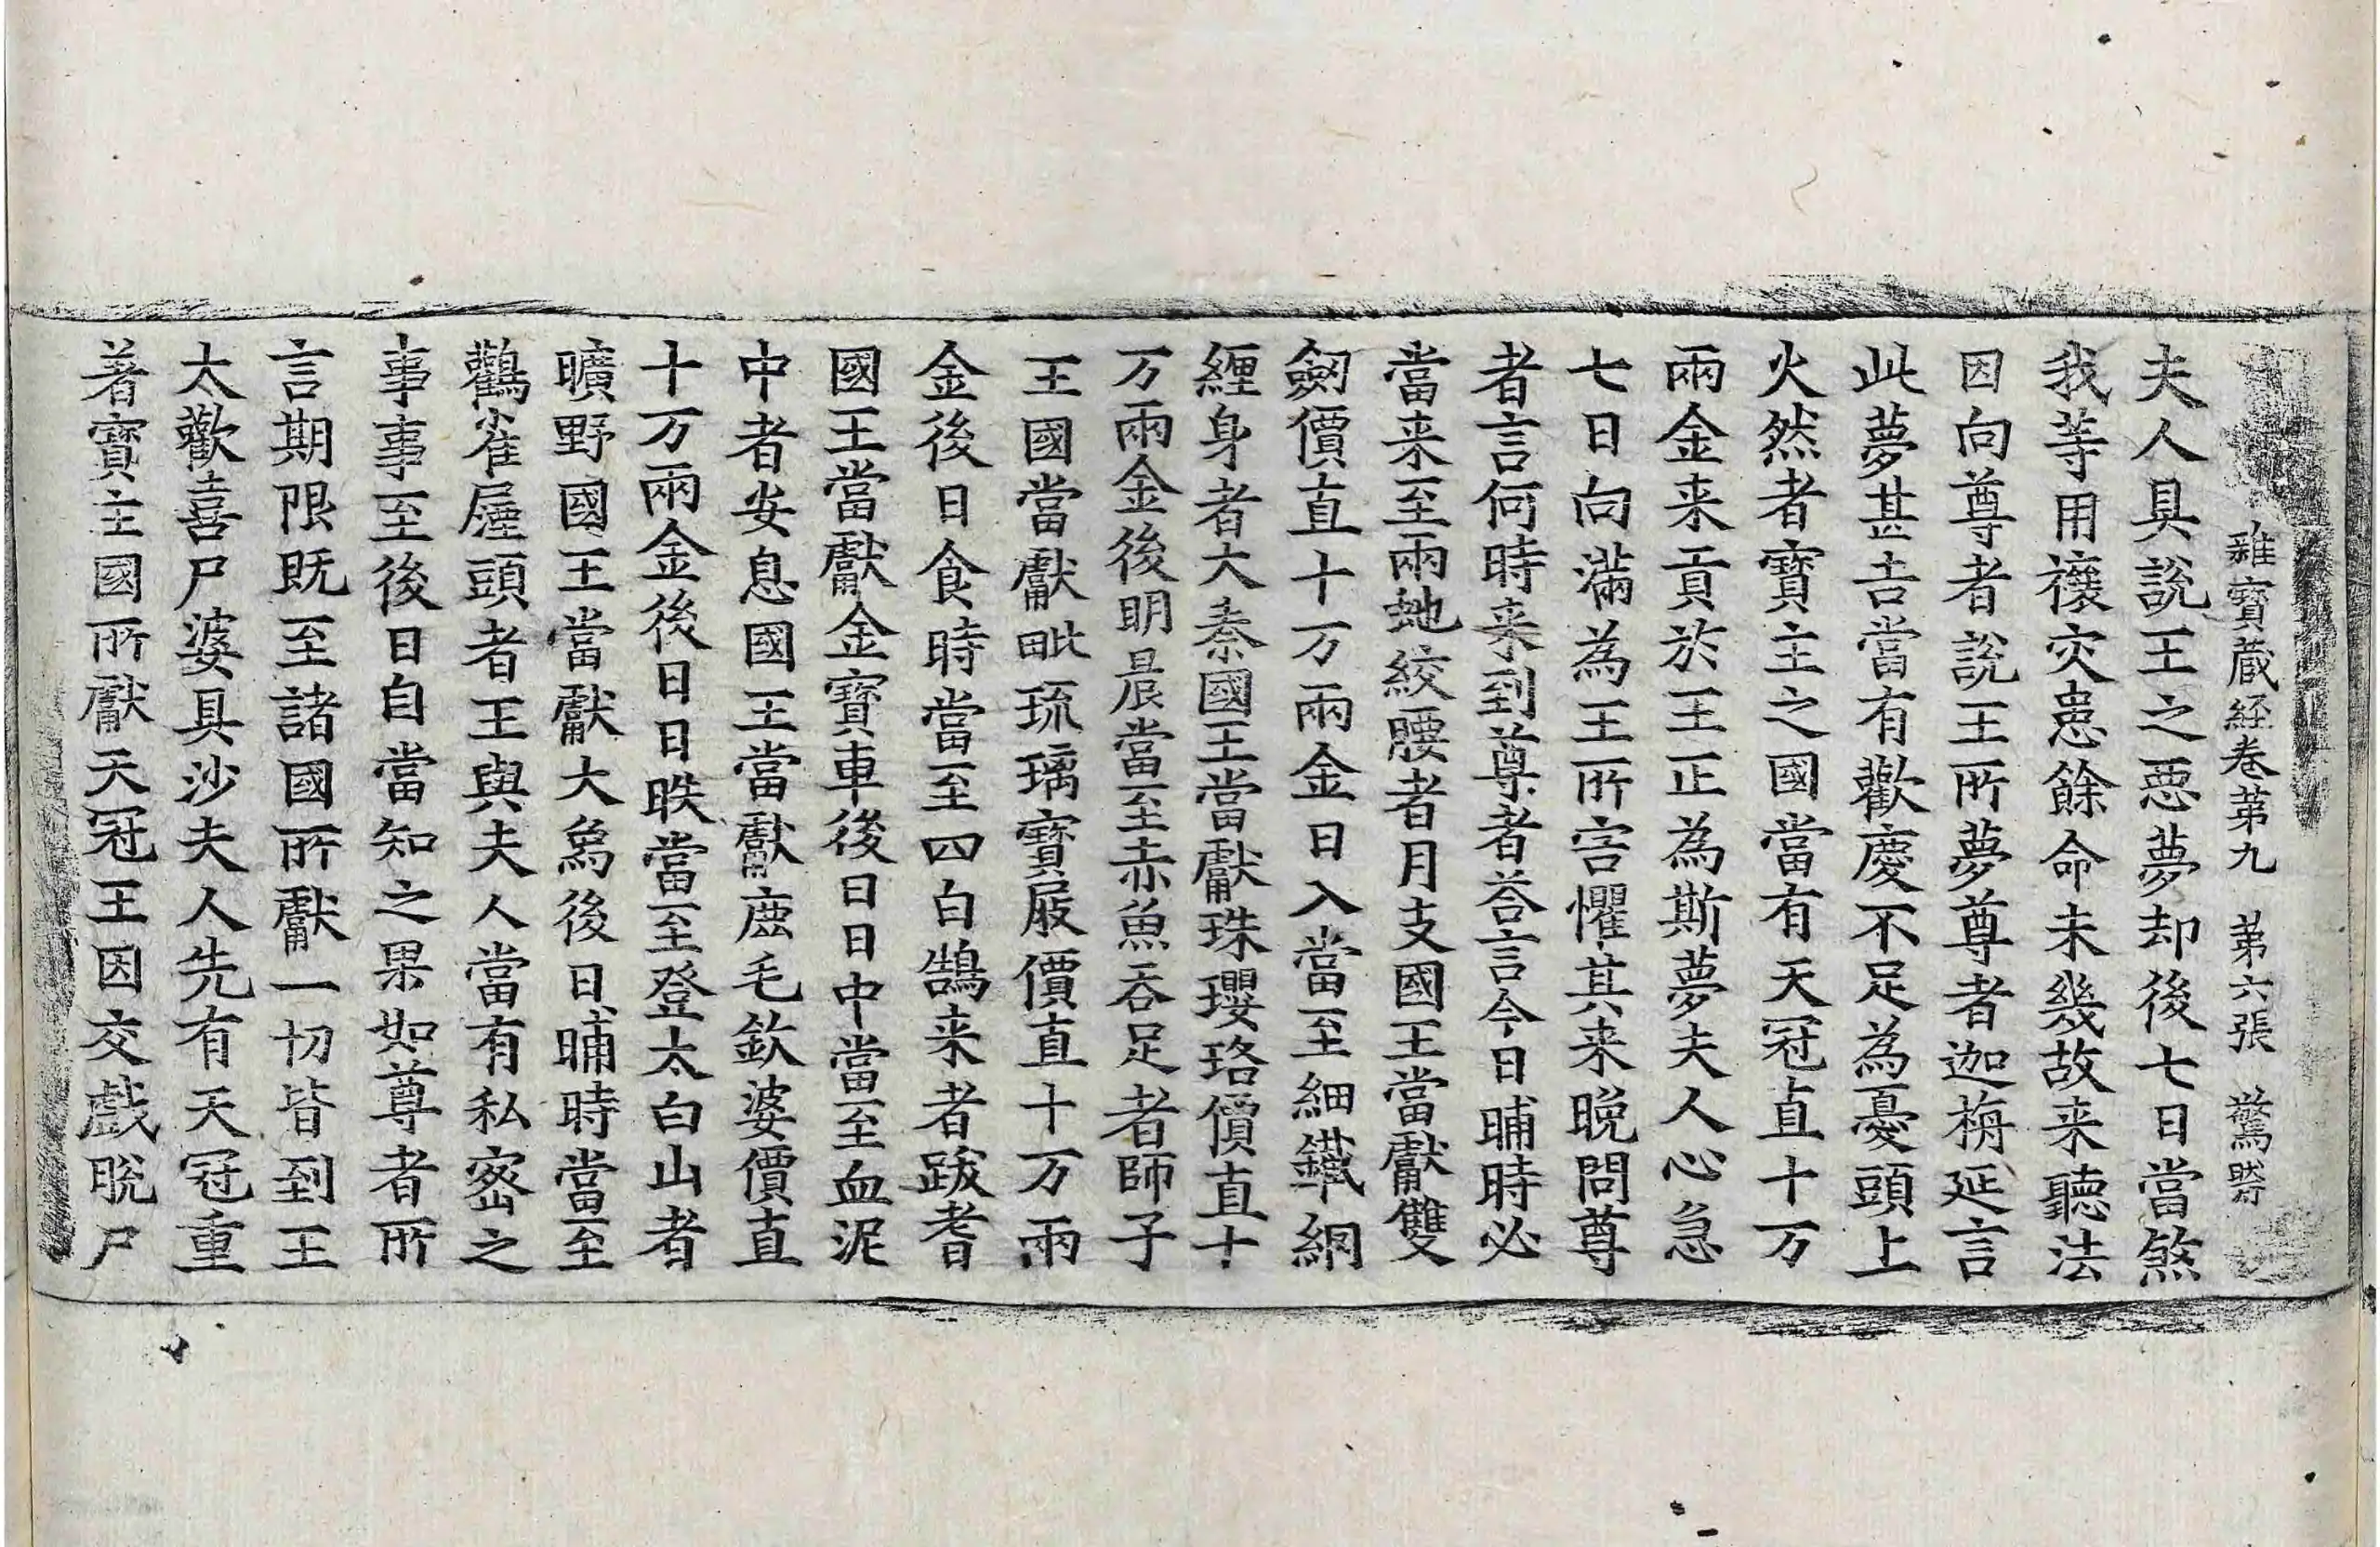 雜寶蔵経卷苐九　苐六張　驚
夫人具說王之惡夢却後七日當煞
我等用禳灾患餘命未幾故来聽法
因向尊者說王所夢尊者迦栴延言
此夢甚吉當有歡慶不足為憂頭上
火然者寶主之國當有天冠直十万
兩金来貢於王正為斯夢夫人心急
七日向滿為王所害懼其来晚問尊
者言何時来到尊者荅言今日晡時必
當来至兩虵絞腰者月支國王當獻雙
劒價直十万兩金日入當至細鐵網
纏身者大秦國王當獻珠瓔珞價直十
万兩金後明晨當至赤魚吞足者師子
王國當獻毗琉璃寶屐價直十万兩
金後日食時當至四白鵠来者跋耆
國王當獻金寶車後日日中當至血泥
中者安息國王當獻鹿毛欽婆價直
十万兩金後日日昳當至登太白山者
曠野國王當獻大為後日晡時當至
鸛雀屎頭者王與夫人當有私宻之
事事至後日自當知之果如尊者所
言期限既至諸國所獻一切皆到王
大歡喜尸婆具沙夫人先有天冠重
著寶主國所獻天冠王因交戲脫尸